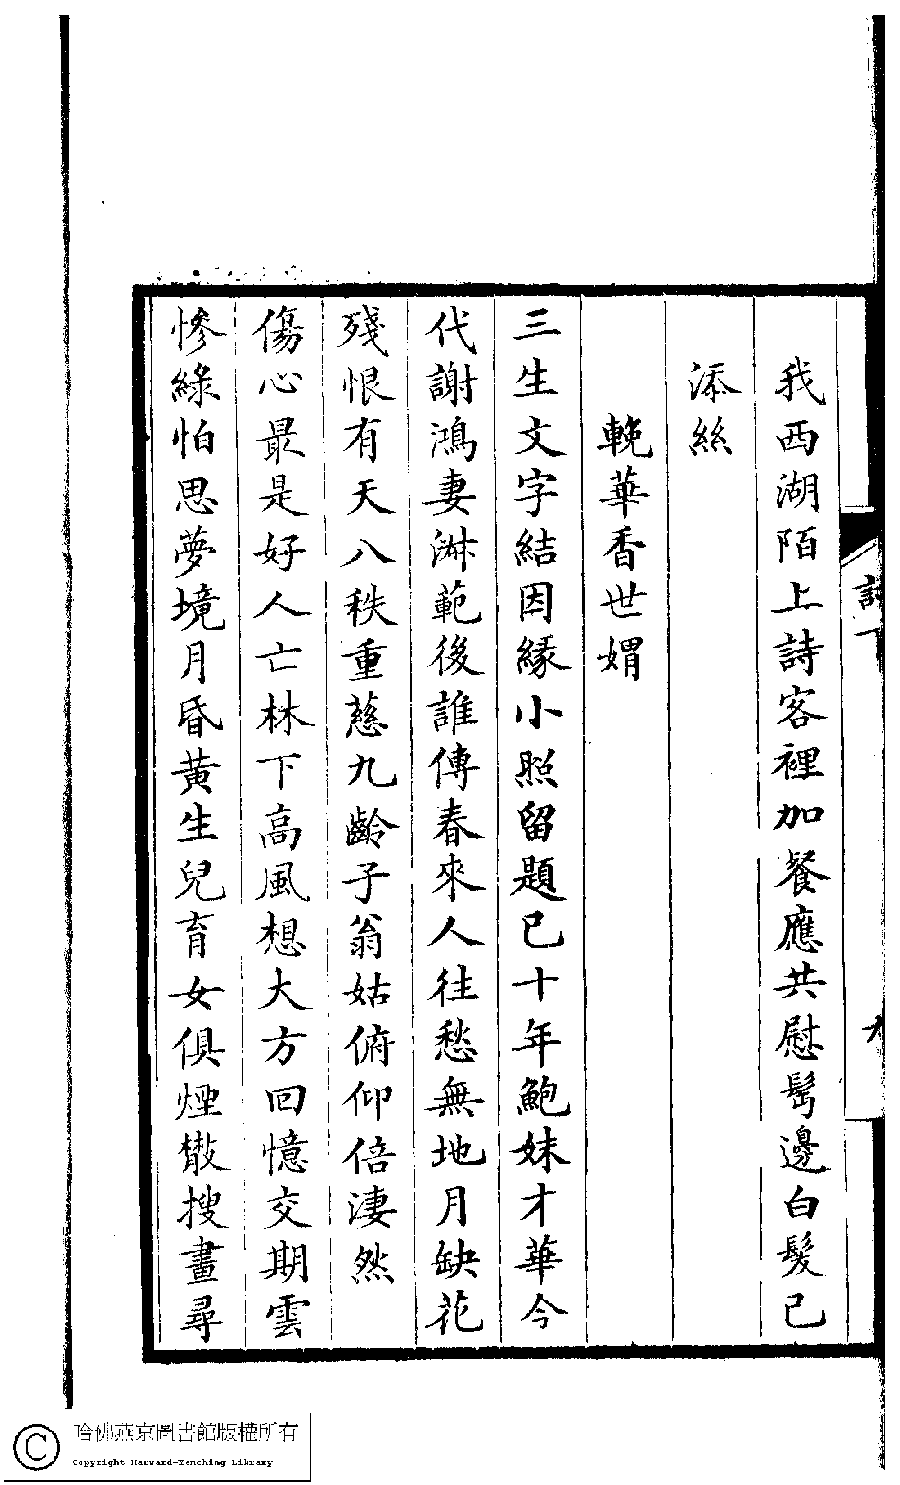 我西湖陌上詩客裡加餐應共慰髩邊白髮已
添絲
輓華香世媦
三生文字結因緣小照留題已十年鮑妹才華今
代謝鴻妻淋範後誰傳春來人往愁無地月缺花
殘恨有天八秩重慈九齡子翁姑俯仰倍淒然
傷心最是好人亡林下高風想大方回憶交期雲
慘綠怕思夢境月昏黃生兒育女俱煙散搜畫尋
九
哈佛燕京圖書館版權所有
Copyright Harvard-Yenching Library